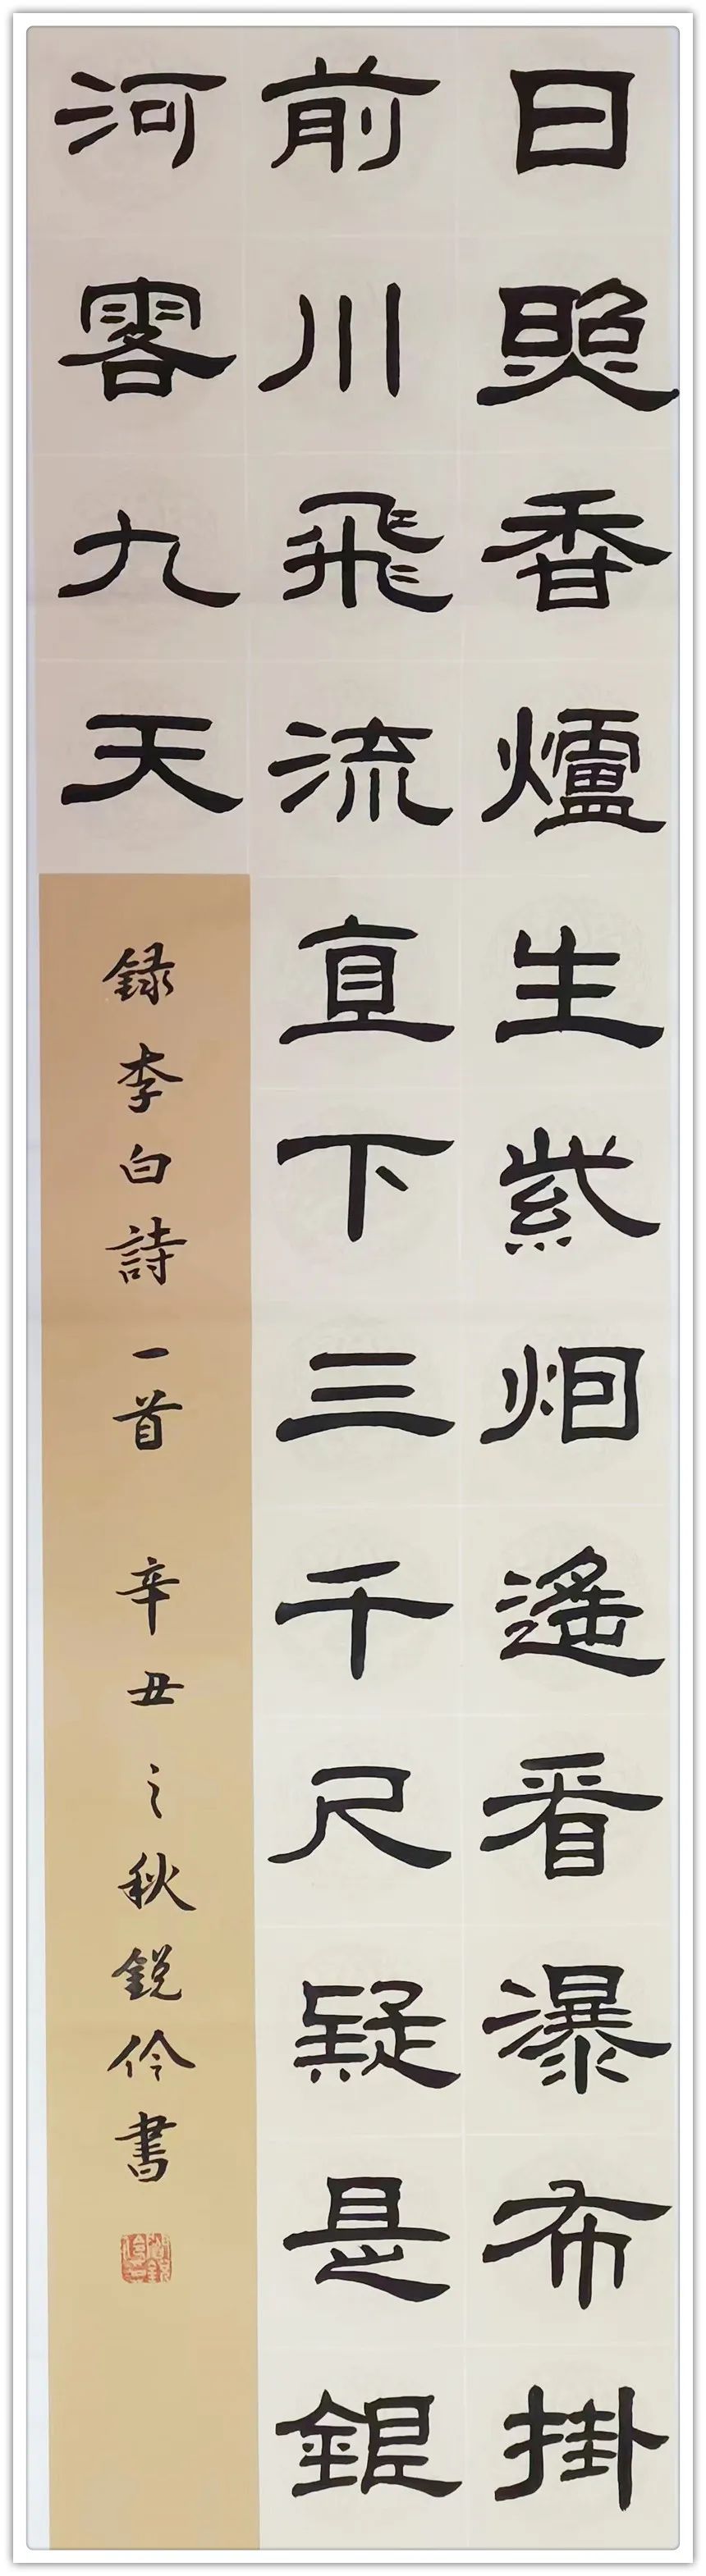 日照香爐生紫烟遥看瀑布掛
前川飛流直下三千尺疑是銀
河客九天
録李白詩一首 辛丑之秋銳伶書